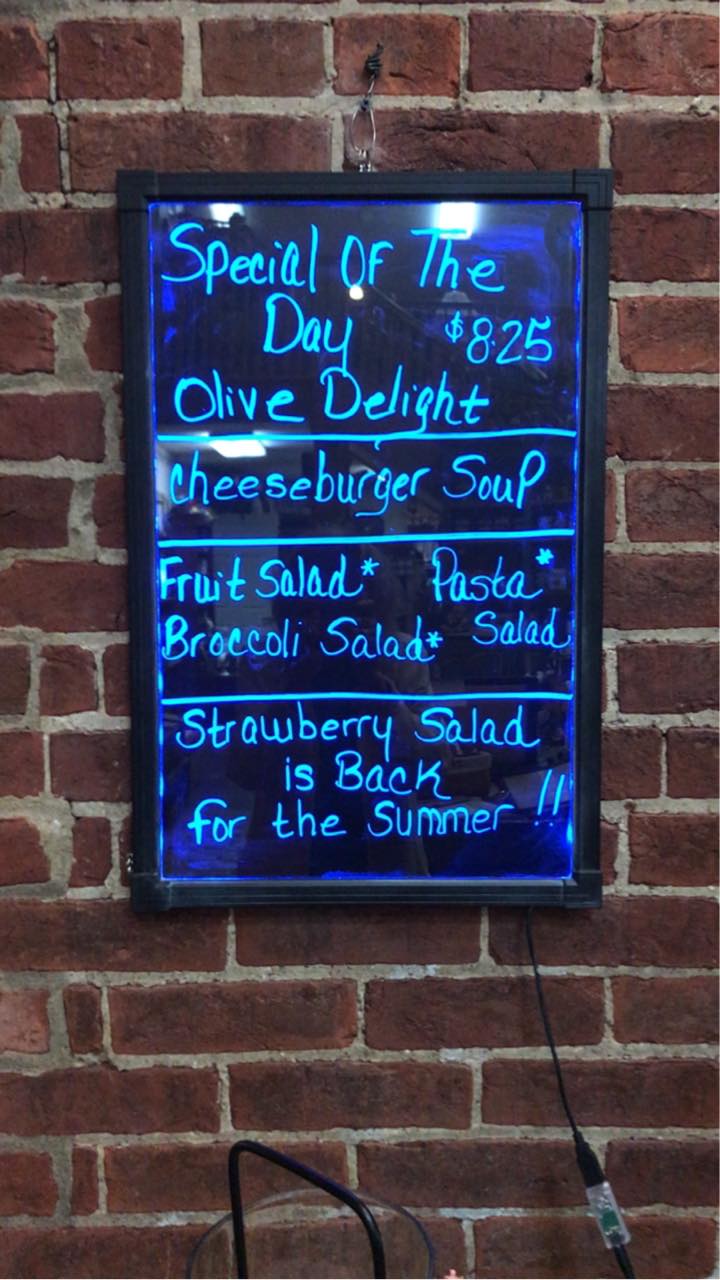 Special Of The
Day $8.25
Olive Delight
Cheeseburger Soup
Fruit Salad* Pasta*
Broccoli Salad* Salad
Strawberry Salad
is Back
for the Summer !!